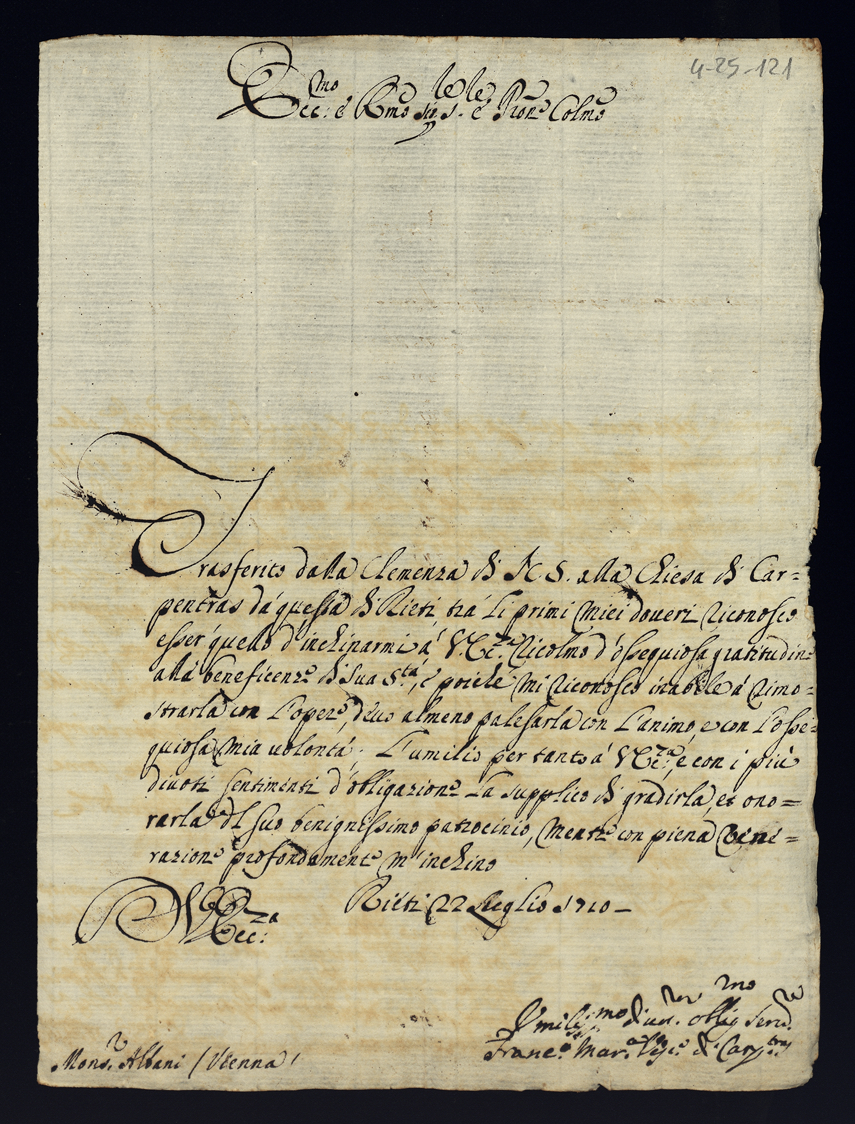 4-25-121
Ecc:mo è Rmo Sig.re S.re è Pron.e Colmo
Trasferito dalla Clemenza di N. S. alla Chiesa di Car=
pentras dà questa di Rieti, trà li primi miei doveri riconosco
esser quello d'inchinarmi à V. Ecc.za Ricolmo d'ossequiosa gratitudine
alla beneficenza di Sua S.tà, è poiche mi riconosco inabile à rimo=
strarla con l'opere, devo almeno palesarla con l'animo, e con l'osse=
quiosa mia volontà; L'umilio per tanto à V. Ecc.za, è con i più
divoti sentimenti d'obligazione La supplico di gradirla, et ono=
rarla del suo benignissimo patrocinio, mentre con piena vene=
razione profondamente m'inchino
Rieti 22 Luglio 1710
V. Ecc:za
Umiliss.mo Div.mo Oblig.mo Serv.re
Franc.o Mar.a Vesc.o di Carp.tras
Mons.r Albani / Vienna /